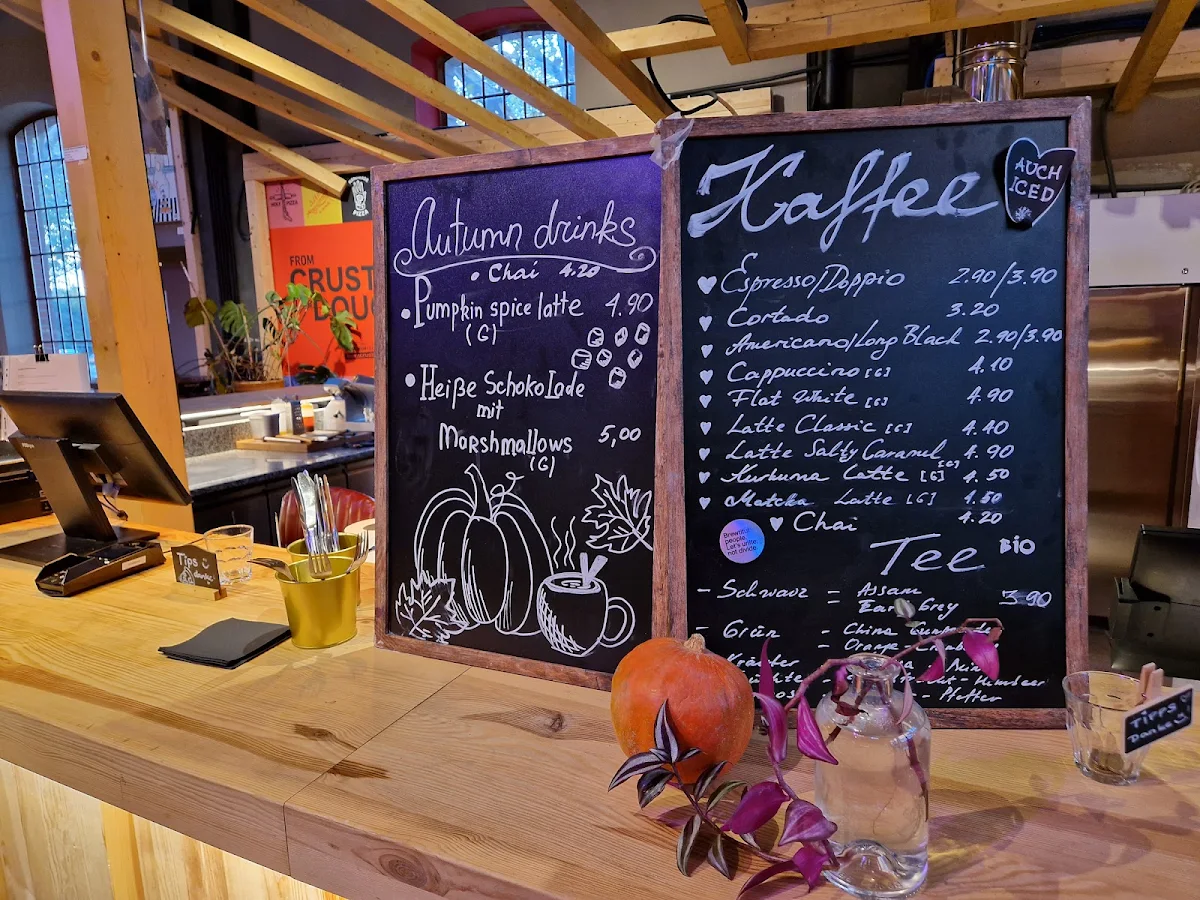 FROM
CRUST
DOUG
Autumn drinks
• Chai 4.20
• Pumpkin spice latte 4.90
(G)
• Heiße Schokolade
mit
Marshmallows 5,00
(G)
Kaffee
AUCH
ICED
Espresso/Doppio 2.90/3.90
Cortado 3.20
Americano/Long Black 2.90/3.90
Cappuccino [G] 4.10
Flat White [G] 4.90
Latte Classic [G] 4.40
Latte Salty Caramel [G] 4.90
Kurkuma Latte [G] 4.50
Matcha Latte [G] 4.50
Chai 4.20
people.
Let's unite
not divide.
Tee BIO
- Schwarz - Assam
- Earl Grey 3.90
- Grün - China
- Orange-
Kräuter
- Pfeffer
Tips
danke
Tipps
Danke